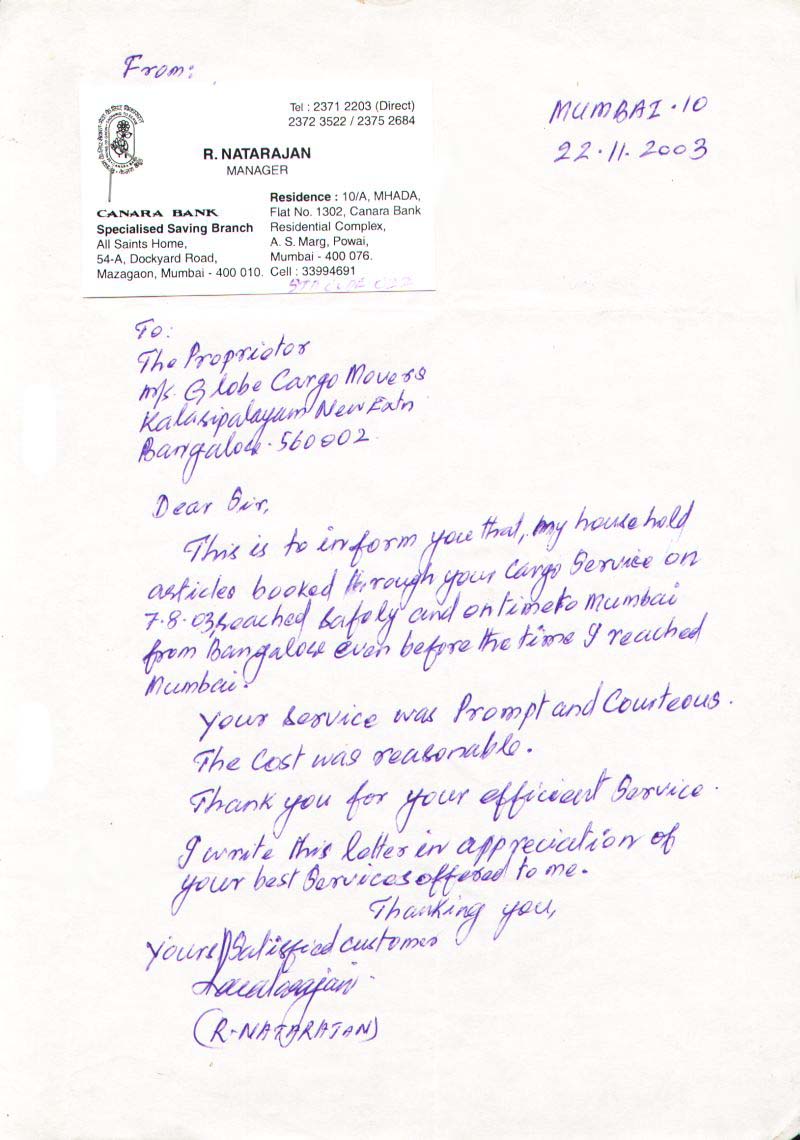 From:
MUMBAI·10
22·11·2003
Tel : 2371 2203 (Direct)
2372 3522 / 2375 2684
R. NATARAJAN
MANAGER
CANARA BANK
Specialised Saving Branch
All Saints Home,
54-A, Dockyard Road,
Mazagaon, Mumbai - 400 010.
Residence : 10/A, MHADA,
Flat No. 1302, Canara Bank
Residential Complex,
A. S. Marg, Powai,
Mumbai - 400 076.
Cell : 33994691
STD CODE 022
To:
The Proprietor
M/s. Globe Cargo Movers
Kalasipalayam New Extn
Bangalore·560002
Dear Sir,
This is to inform you that, my household
articles booked through your Cargo Service on
7·8·03, reached safely and on time to Mumbai
from Bangalore even before the time I reached
Mumbai.
Your service was Prompt and Courteous.
The Cost was reasonable.
Thank you for your efficient Service.
I write this letter in appreciation of
your best Services offered to me.
Thanking you,
Yours Satisfied customer
(R·NATARAJAN)